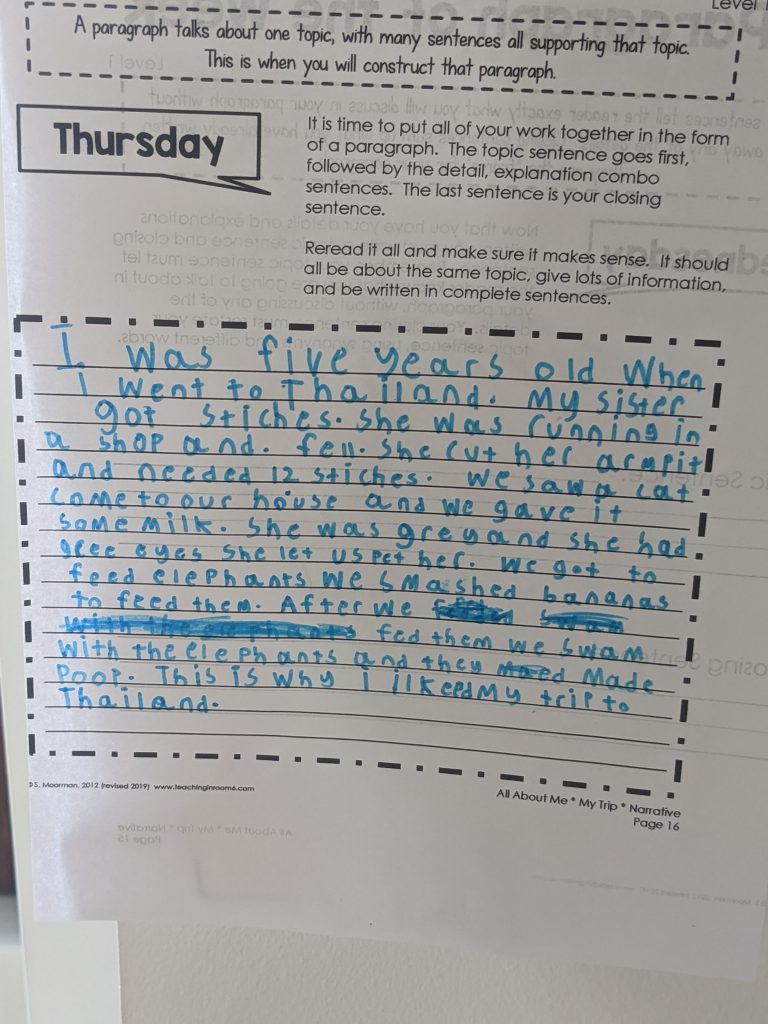 Level
A paragraph talks about one topic, with many sentences all supporting that topic.
This is when you will construct that paragraph.
Thursday
It is time to put all of your work together in the form
of a paragraph. The topic sentence goes first,
followed by the detail, explanation combo
sentences. The last sentence is your closing
sentence.
Reread it all and make sure it makes sense. It should
all be about the same topic, give lots of information,
and be written in complete sentences.
I was five years old When
i went to Thailand. My sister
got stiches. she was running in
a shop and. fell. She cut her armpit
and needed 12 stiches. we saw a cat
come to our house and we gave it
some milk. She was grey and she had
gree eyes she let us pet her. we got to
feed elephants we smashed bananas
to feed them. After we swam
with the elephants fed them we swam
with the elephants and they Made
Poop. This is why i ilkeed My trip to
Thailand.
©S. Moorman, 2012 (revised 2019) www.teachinginroom6.com
All About Me * My Trip * Narrative
Page 16